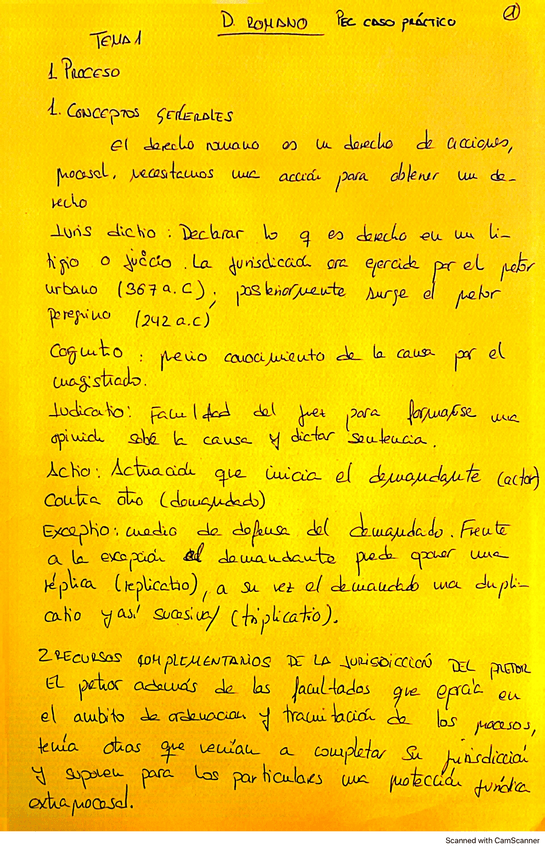 D. ROMANO PEC CASO PRÁCTICO 1
TEMA 1
1. PROCESO
1. CONCEPTOS GENERALES
El derecho romano es un derecho de acciones,
procesal, necesitamos una acción para obtener un de-
recho
Iuris dictio: Declarar lo q es derecho en un li-
tigio o juicio. La jurisdicción era ejercida por el pretor
urbano (367 a.C), posteriormente surge el pretor
peregrino (242 a.C)
Cognitio: previo conocimiento de la causa por el
magistrado.
Iudicatio: Facultad del juez para formarse una
opinión sobre la causa y dictar sentencia.
Actio: Actuación que inicia el demandante (actor)
contra otro (demandado)
Exceptio: medio de defensa del demandado. Frente
a la excepción el demandante puede oponer una
réplica (replicatio), a su vez el demandado una dupli-
catio y así sucesiva/ (triplicatio).
2 RECURSOS COMPLEMENTARIOS DE LA JURISDICCIÓN DEL PRETOR
El pretor además de las facultades que ejercía en
el ambito de ordenacion y tramitación de los procesos,
tenía otras que venían a completar su jurisdicción
y suponen para los particulares una protección jurídica
extraprocesal.
Scanned with CamScanner